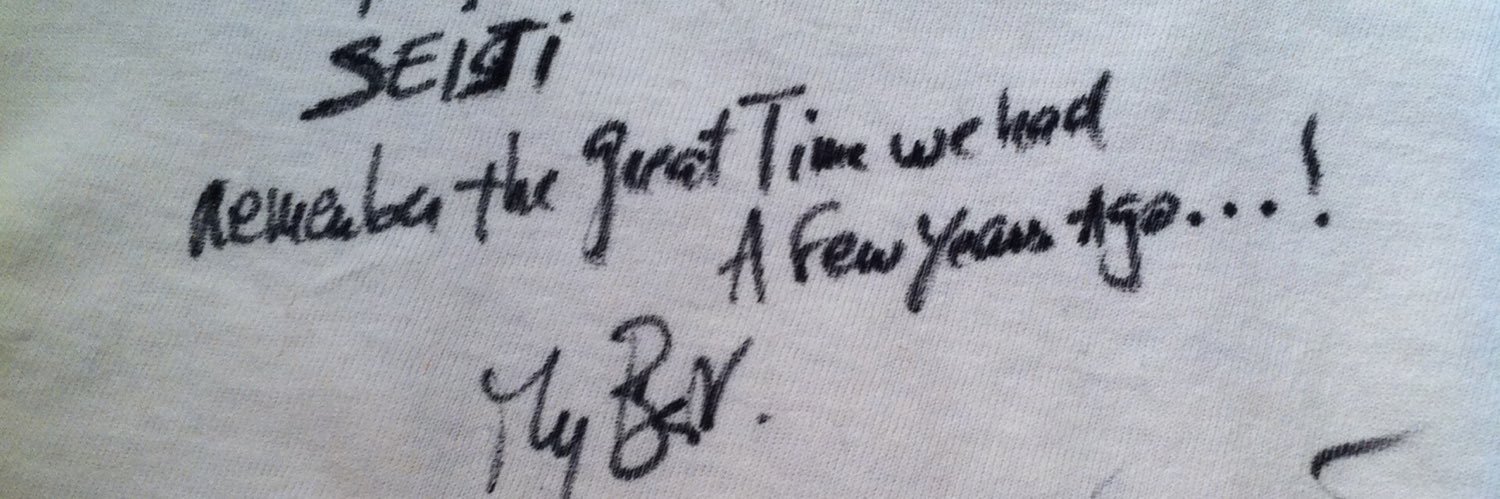 SEIJI
Remember the great Time we had
A Few years Ago...!
My Best.